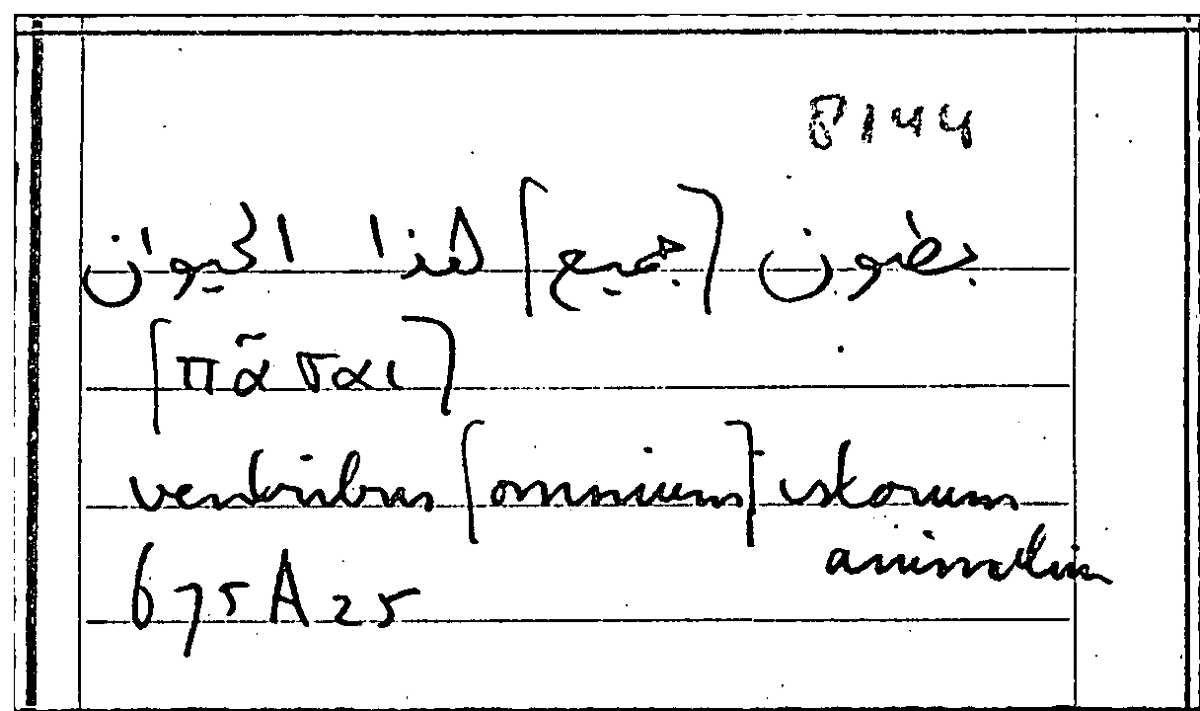 8144
بطون [جميع] هذا الحيوان
[πᾶσαι]
ventribus [omnium] istorum
animalium
675A25